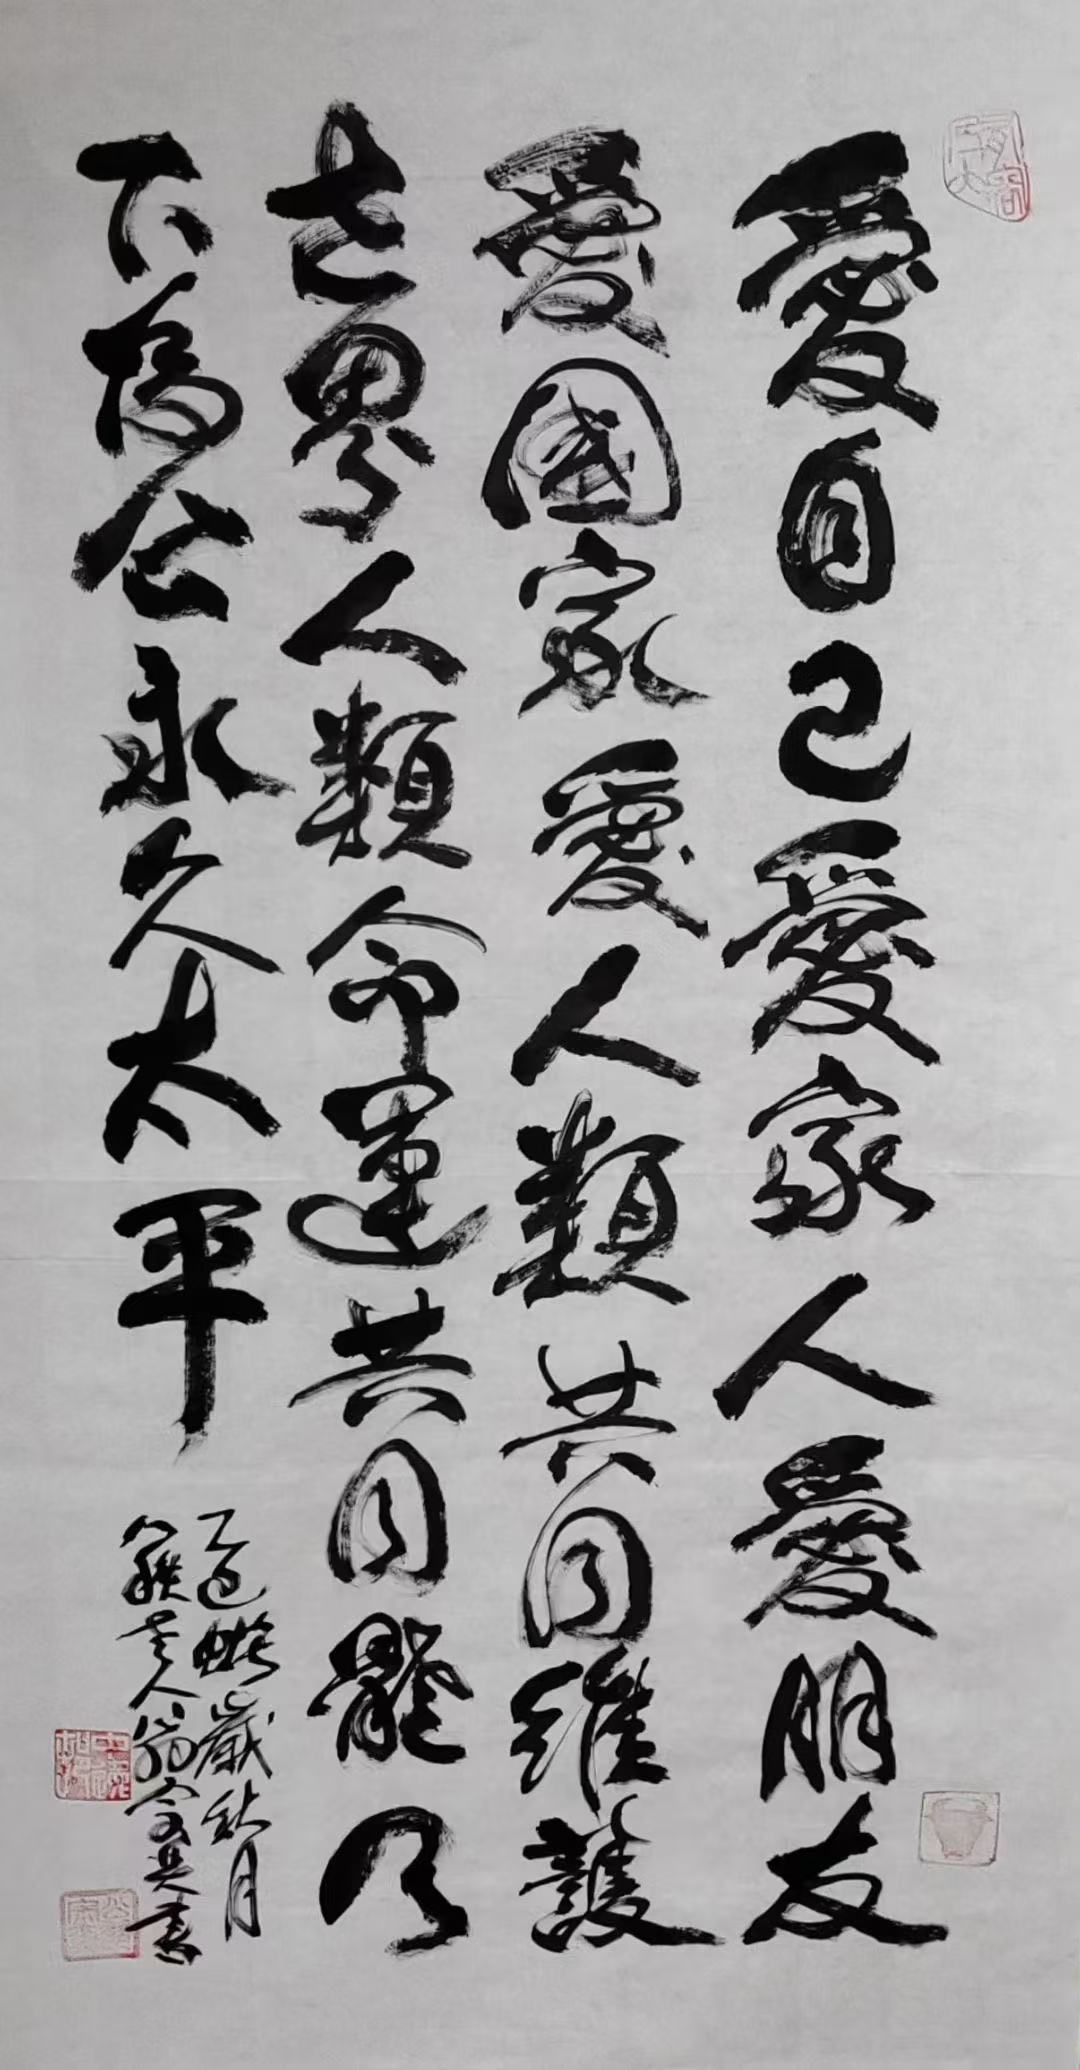 愛自己愛家人愛朋友
愛國家愛人類共同維護
世界人類命運共同體乃
下為公永久太平
乙巳蛇歲秋月
老人翁
書